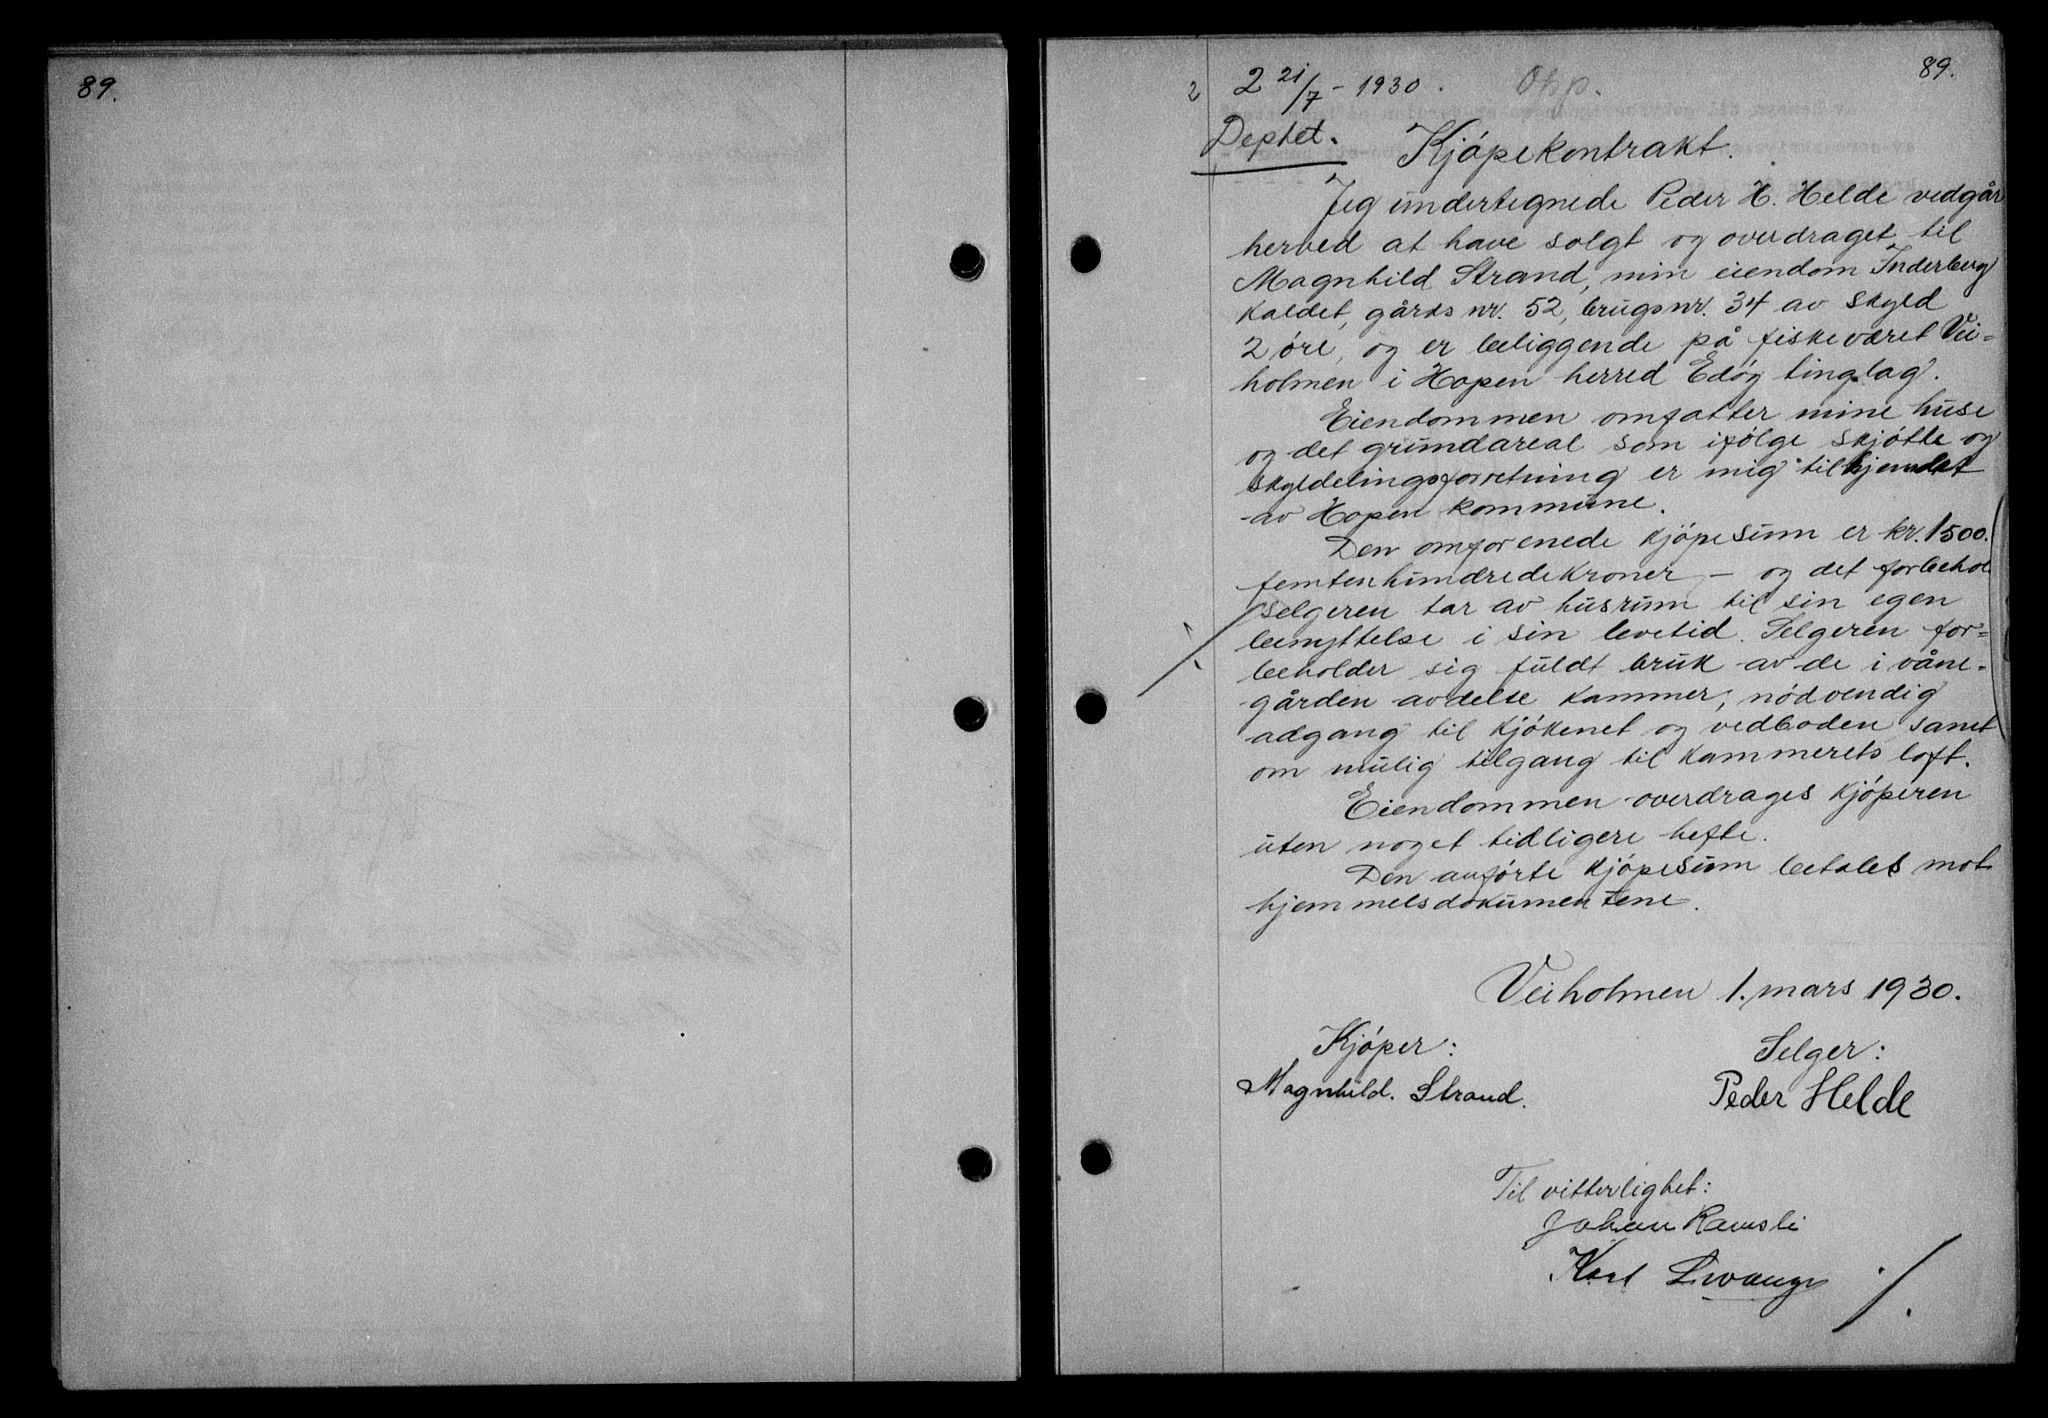 89.
89.
2 2 21/7 - 1930.
Deptet.
Kjøpekontrakt.
Jeg undertegnede Peder H. Helde vedgår
herved at have solgt og overdraget til
Magnhild Strand, min eiendom Inderberg
kaldet, gårds nr. 52, brugsnr. 34 av skyld
2 øre, og er beliggende på fiskeværet Vei-
holmen i Hopen herred Edøy tinglag.
Eiendommen omfatter mine huse
og det grundareal som ifølge skjøtte og
skyldelingsforretning er mig tilhjemlet
av Hopen kommune.
Den omforenede kjøpesum er kr. 1500.
femtenhundredekroner - og det forbehol
selgeren tar av husrum til sin egen
benyttelse i sin levetid. Selgeren for-
beholder sig fuldt bruk av de i våne-
gården avdelse kammer, nødvendig
adgang til kjøkenet og vedboden samt
om mulig tilgang til kammerets loft.
Eiendommen overdrages kjøperen
uten noget tidligere hefte.
Den anførte kjøpesum betales mot
hjemmelsdokumentene.
Veiholmen 1. mars 1930.
Kjøper: Selger:
Magnhild. Strand. Peder Helde
Til vitterlighet:
Johan Ramsli
Karl